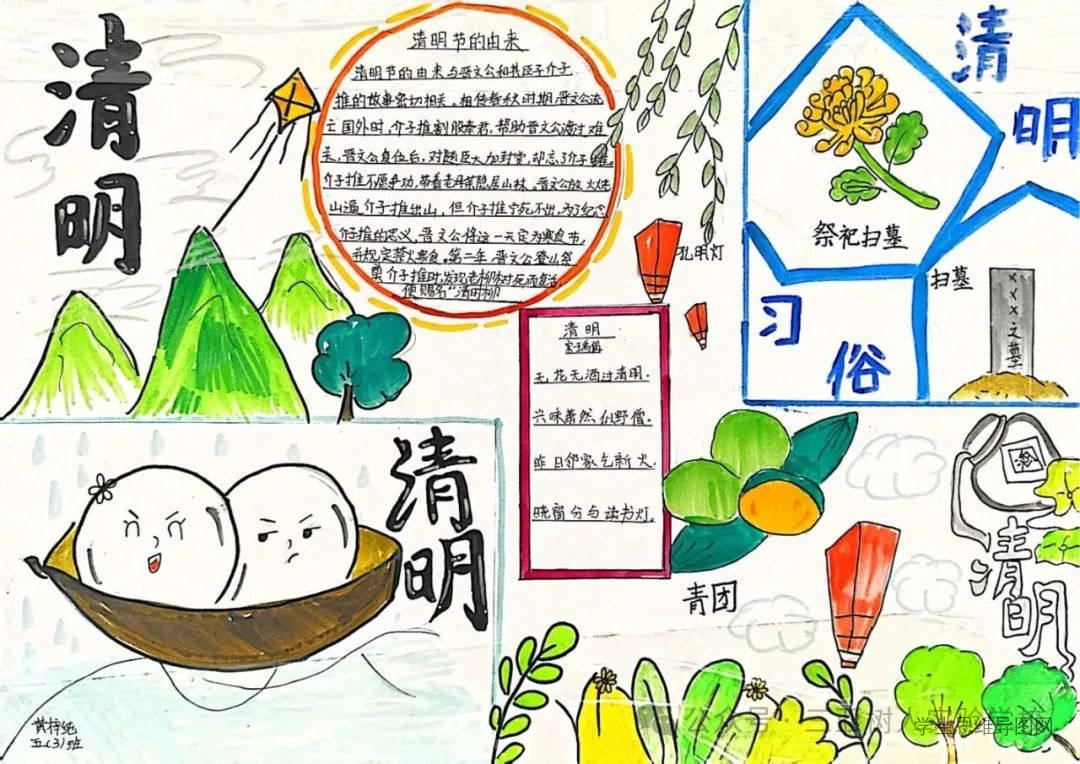 清明
清明节的由来
清明节的由来与晋文公和其臣子介子
推的故事密切相关。相传春秋时期晋文公流
亡国外时,介子推割股奉君,帮助晋文公渡过难
关。晋文公复位后,对随臣大加封赏,却忘了介子推。
介子推不愿争功,带着老母亲隐居山林。晋文公放火烧
山逼介子推出山,但介子推宁死不出,为了纪念
介子推的忠义,晋文公将这一天定为寒食节,
并规定禁火寒食。第二年,晋文公登山祭
奠介子推时,发现老柳树死而复活,
便赐名"清明柳
孔明灯
清明
祭祀扫墓
扫墓
×××之墓
习俗
清明
无花无酒过清明,
兴味萧然似野僧。
昨日邻家乞新火,
晓窗分与读书灯。
清明
青团
清明
五(3)班
公众号
学生思维导图网